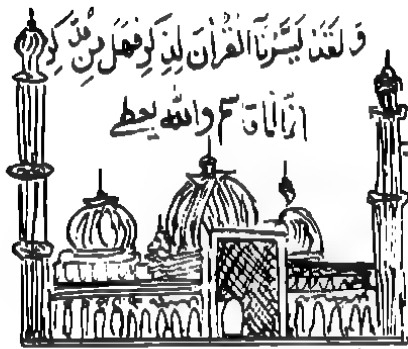 وَلَقَدْ يَسَّرْنَا الْقُرْاٰنَ لِلذِّكْرِ فَهَلْ مِنْ مُّدَّكِرٍ
انما انا قاسم والله يعطى